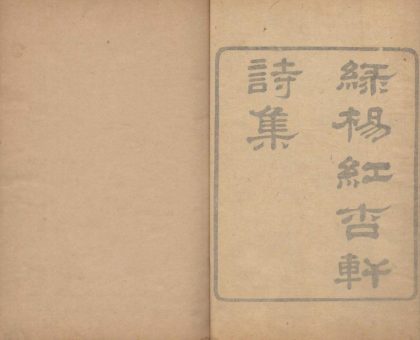 綠楊紅杏軒
詩集